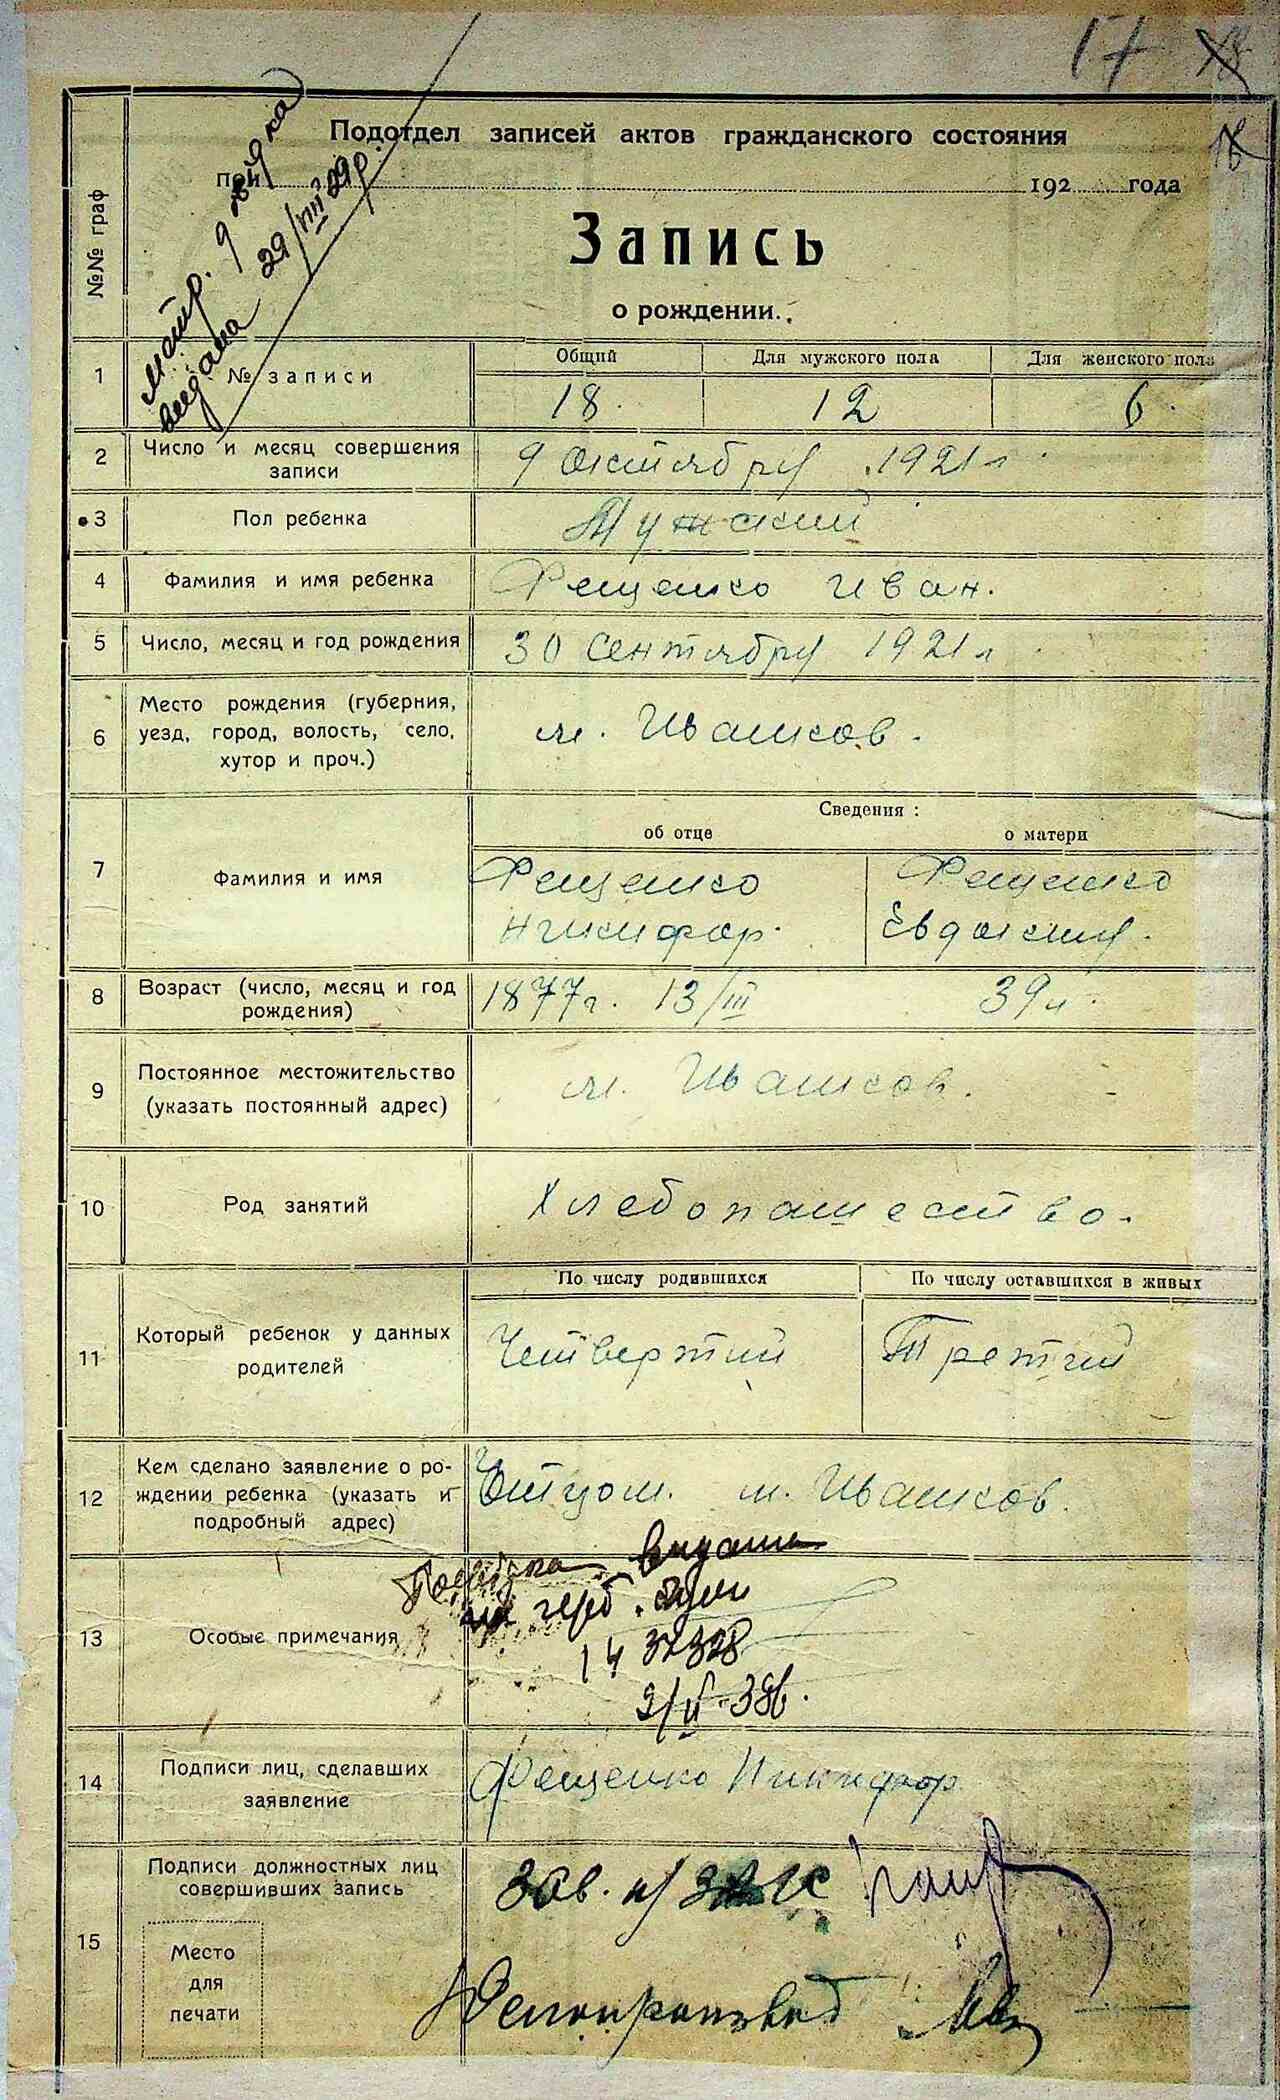 17
18
Подотдел записей актов гражданского состояния
при 192 года
Запись
о рождении.
выдана 29/VIII 29 р.
№№ граф
1 № записи
Общий Для мужского пола Для женского пола
18. 12 6.
2 Число и месяц совершения
записи
9 Октября 1921 г.
3 Пол ребенка Мужский
4 Фамилия и имя ребенка Фещенко Иван.
5 Число, месяц и год рождения 30 Сентября 1921 г.
6 Место рождения (губерния,
уезд, город, волость, село,
хутор и проч.)
м. Ивашков.
Сведения:
об отце о матери
7 Фамилия и имя
Фещенко Фещенко
Никифор. Евдокия.
8 Возраст (число, месяц и год
рождения)
1877 г. 13/III 39 л.
9 Постоянное местожительство
(указать постоянный адрес)
м. Ивашков.
10 Род занятий Хлебопашество.
По числу родившихся По числу оставшихся в живых
11 Который ребенок у данных
родителей
Четвертий Третий
12 Кем сделано заявление о ро-
ждении ребенка (указать и
подробный адрес)
Отцом. м. Ивашков.
13 Особые примечания
видана
на герб.
14
14 Подписи лиц, сделавших
заявление
Фещенко Никифор
15 Подписи должностных лиц
совершивших запись
Зав. п/ ЗАГС
Место
для
печати
Делопроизвод